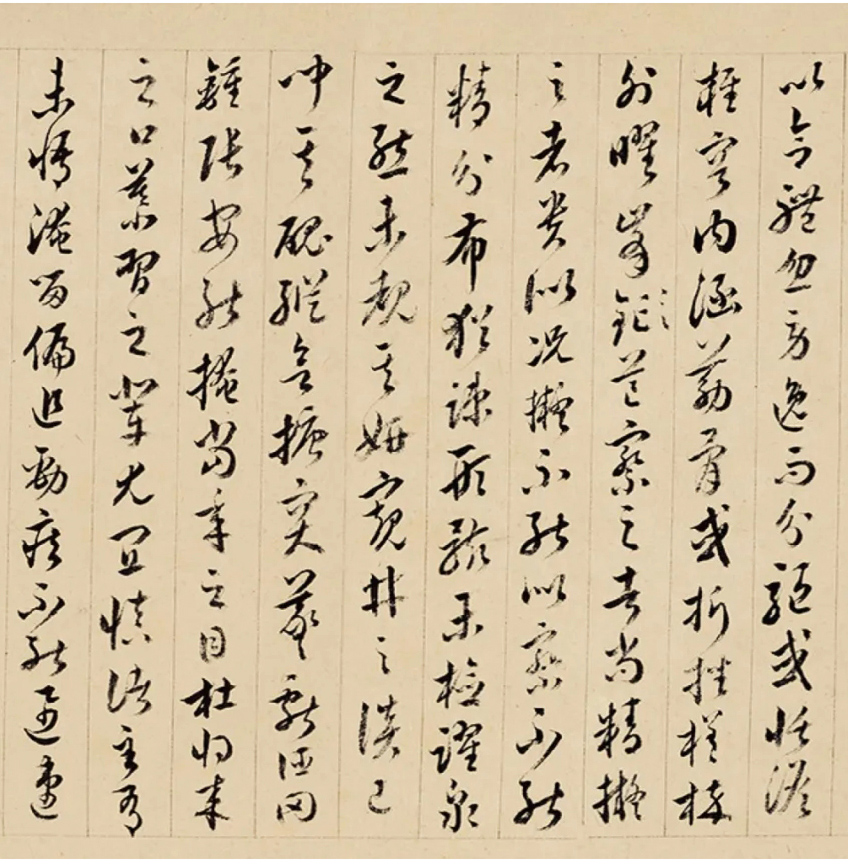 以合體忽勞逸而分驅或恬澹
雍容內涵筋骨或折挫槎枿
外曜峯芒察之者尚精擬
之者貴似況擬不能似察不能
精分布猶疎形骸未檢躍泉
之態未覩其妍窺井之談已
聞其醜縱欲搪突羲獻誣罔
鍾張安能掩當年之目杜將來
之口慕習之輩尤宜慎諸至有
未悟淹留偏追勁疾不能迅速